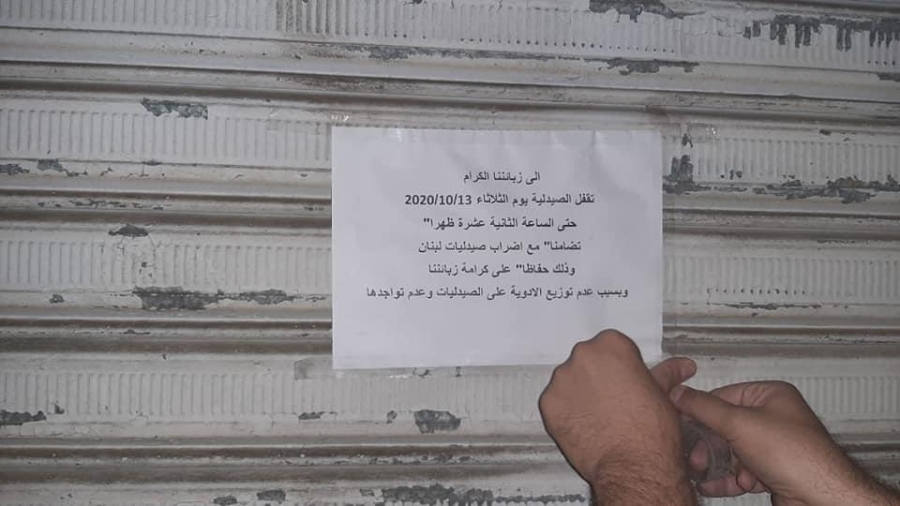 الى زبائننا الكرام
تقفل الصيدلية يوم الثلاثاء 2020/10/13
حتى الساعة الثانية عشرة ظهرا"
تضامنا" مع اضراب صيدليات لبنان
وذلك حفاظا" على كرامة زبائننا
وبسبب عدم توزيع الادوية على الصيدليات وعدم تواجدها